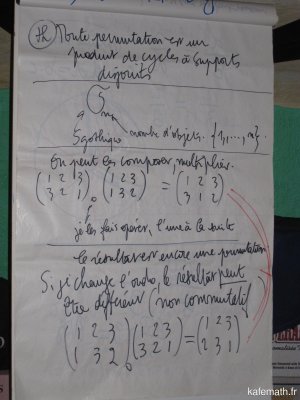 Th Toute permutation est un
produit de cycles à supports
disjoints
𝔖n
S gothique nombre d'objets. {1,...,n}.
On peut les composer, multiplier.
(1 2 3 / 3 2 1) ∘ (1 2 3 / 1 3 2) = (1 2 3 / 3 1 2)
je les fais opérer, l'une à la suite
le résultat est encore une permutation
Si je change l'ordre, le résultat peut
être différent (non commutatif)
(1 2 3 / 1 3 2) ∘ (1 2 3 / 3 2 1) = (1 2 3 / 2 3 1)
kafemath.fr